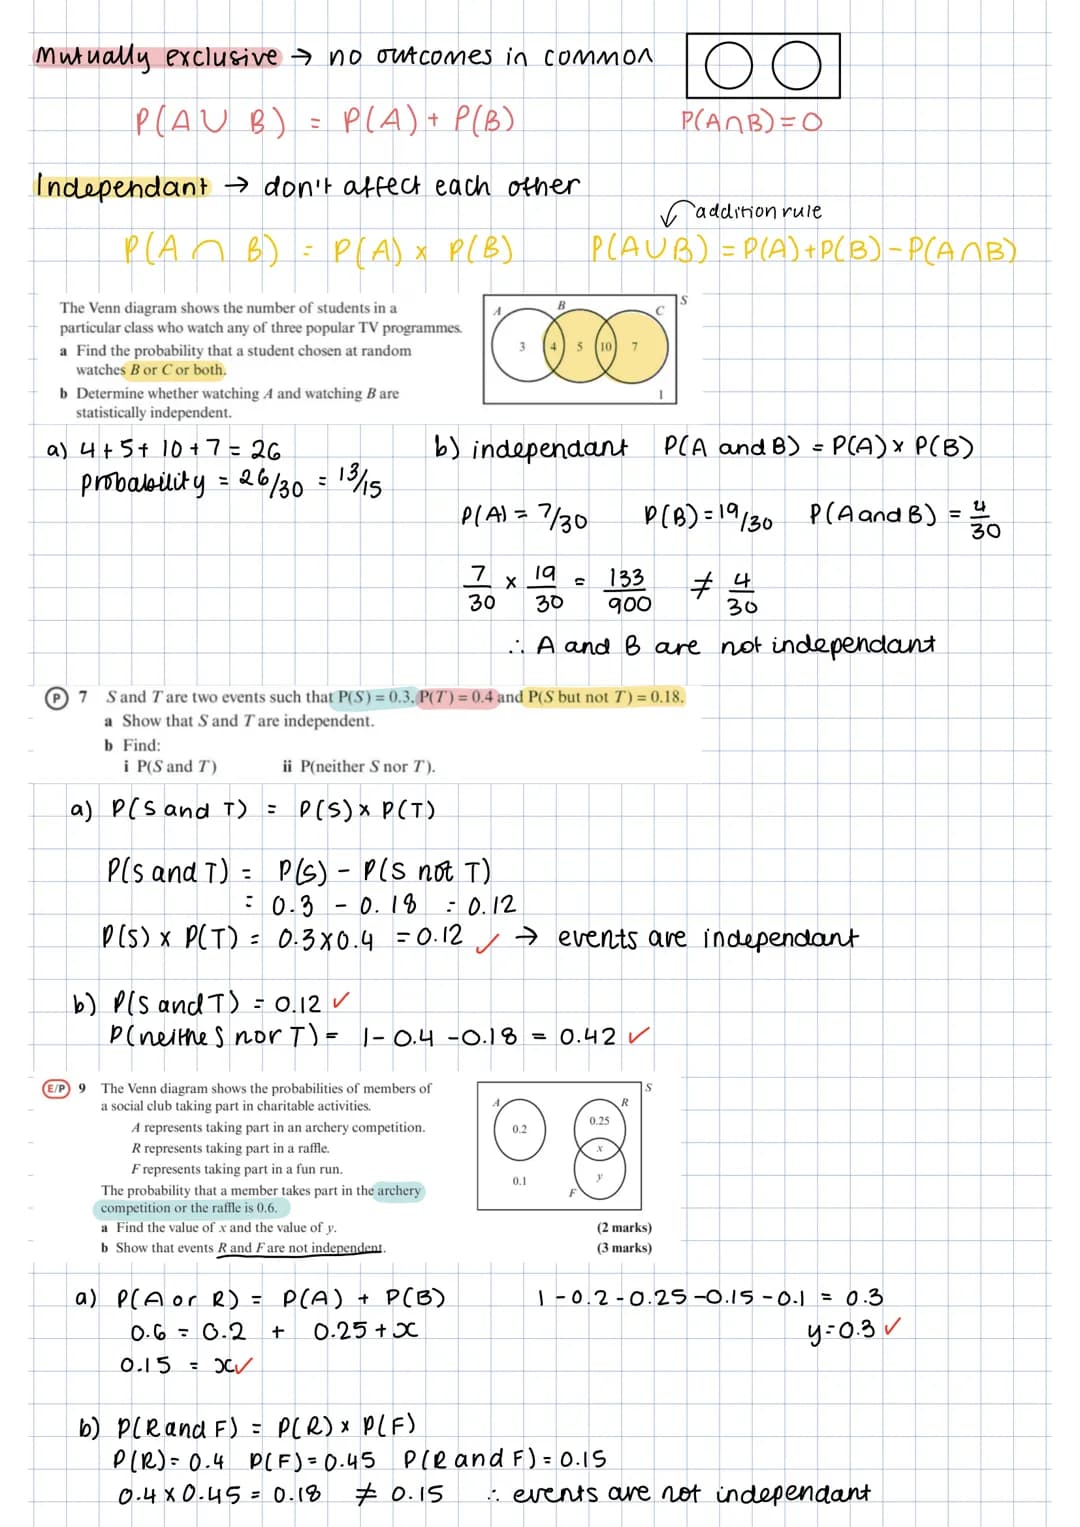 Mutually exclusive → no outcomes in common
P(A∪B) = P(A) + P(B)
P(A∩B) = 0
Independant → don't affect each other
addition rule
P(A∩B) = P(A) x P(B)
P(A∪B) = P(A)+P(B)-P(A∩B)
The Venn diagram shows the number of students in a
particular class who watch any of three popular TV programmes.
a Find the probability that a student chosen at random
watches B or C or both.
b Determine whether watching A and watching B are
statistically independent.
A B C S
3 4 5 10 7
1
a) 4+5+ 10+7 = 26
probability = 26/30 = 13/15
b) independant P(A and B) = P(A) x P(B)
P(A) = 7/30 P(B) = 19/30 P(A and B) = 4/30
7/30 x 19/30 = 133/900 ≠ 4/30
∴ A and B are not independant
P 7 S and T are two events such that P(S) = 0.3, P(T) = 0.4 and P(S but not T) = 0.18.
a Show that S and T are independent.
b Find:
i P(S and T) ii P(neither S nor T).
a) P(S and T) = P(S) x P(T)
P(S and T) = P(S) - P(S not T)
= 0.3 - 0.18 = 0.12
P(S) x P(T) = 0.3x0.4 = 0.12 ✓ → events are independant
b) P(S and T) = 0.12 ✓
P(neithe S nor T) = 1-0.4-0.18 = 0.42 ✓
E/P 9 The Venn diagram shows the probabilities of members of
a social club taking part in charitable activities.
A represents taking part in an archery competition.
R represents taking part in a raffle.
F represents taking part in a fun run.
The probability that a member takes part in the archery
competition or the raffle is 0.6.
a Find the value of x and the value of y.
(2 marks)
b Show that events R and F are not independent.
(3 marks)
S
A R
0.2 0.25
x
0.1 y
F
a) P(A or R) = P(A) + P(B)
0.6 = 0.2 + 0.25+x
0.15 = x ✓
1-0.2-0.25-0.15-0.1 = 0.3
y=0.3 ✓
b) P(R and F) = P(R) x P(F)
P(R) = 0.4 P(F) = 0.45 P(R and F) = 0.15
0.4 x 0.45 = 0.18 ≠ 0.15 ∴ events are not independant